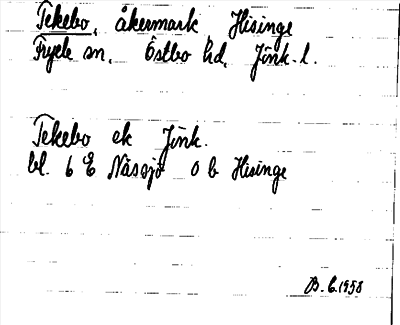 Tekebo, åkermark Hisinge
Fryele sn. Östbo hd. Jönk. l.
Tekebo ek Jönk.
bl. 6 E Nässjö 0 b Hisinge
B. L. 1958